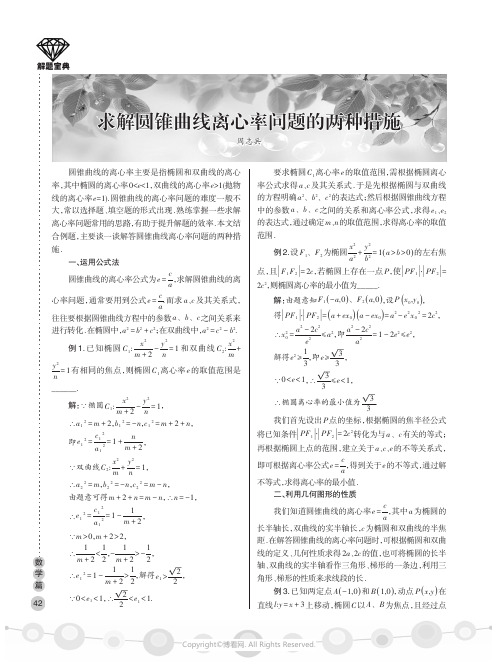 解题宝典
求解圆锥曲线离心率问题的两种措施
周志兵
圆锥曲线的离心率主要是指椭圆和双曲线的离心
率,其中椭圆的离心率0<e<1,双曲线的离心率e>1(抛物
线的离心率e=1).圆锥曲线的离心率问题的难度一般不
大,常以选择题、填空题的形式出现.熟练掌握一些求解
离心率问题常用的思路,有助于提升解题的效率.本文结
合例题,主要谈一谈解答圆锥曲线离心率问题的两种措
施.
一、运用公式法
圆锥曲线的离心率公式为e=c/a,求解圆锥曲线的离
心率问题,通常要用到公式e=c/a而求a、c及其关系式,
往往要根据圆锥曲线方程中的参数a、b、c之间关系来
进行转化.在椭圆中,a²=b²+c²;在双曲线中,a²=c²-b².
例1.已知椭圆C₁:x²/(m+2)-y²/n=1和双曲线C₂:x²/m+
y²/n=1有相同的焦点,则椭圆C₁离心率e的取值范围是
_____.
解:∵椭圆C₁:x²/(m+2)-y²/n=1,
∴a₁²=m+2,b₁²=-n,c₁²=m+2+n,
即e₁²=c₁²/a₁²=1+n/(m+2),
∵双曲线C₂:x²/m+y²/n=1,
∴a₂²=m,b₂²=-n,c₂²=m-n,
由题意可得m+2+n=m-n,∴n=-1,
∴e₁²=c₁²/a₁²=1-1/(m+2),
∵m>0,m+2>2,
∴1/(m+2)<1/2,-1/(m+2)>-1/2,
∴e₁²=1-1/(m+2)>1/2,解得e₁>√2/2,
∵0<e₁<1,∴√2/2<e₁<1.
要求椭圆C₁离心率e的取值范围,需根据椭圆离心
率公式求得a、c及其关系式.于是先根据椭圆与双曲线
的方程明确a²、b²、c²的表达式;然后根据圆锥曲线方程
中的参数a、b、c之间的关系和离心率公式,求得e₁、e₂
的表达式,通过确定m、n的取值范围,求得离心率的取值
范围.
例2.设F₁、F₂为椭圆x²/a²+y²/b²=1(a>b>0)的左右焦
点,且|F₁F₂|=2c,若椭圆上存在一点P,使|PF₁|·|PF₂|=
2c²,则椭圆离心率的最小值为_____.
解:由题意知F₁(-a,0)、F₂(a,0),设P(x₀,y₀),
得|PF₁|·|PF₂|=(a+ex₀)(a-ex₀)=a²-e²x₀²=2c²,
∴x₀²=(a²-2c²)/e²≤a²,即(a²-2c²)/a²=1-2e²≤e²,
解得e²≥1/3,即e≥√3/3,
∵0<e<1,∴√3/3≤e<1,
∴椭圆离心率的最小值为√3/3.
我们首先设出P点的坐标,根据椭圆的焦半径公式
将已知条件|PF₁|·|PF₂|=2c²转化为与a、c有关的等式;
再根据椭圆上点的范围,建立关于a、c、e的不等关系式,
即可根据离心率公式e=c/a,得到关于e的不等式,通过解
不等式,求得离心率的最小值.
二、利用几何图形的性质
我们知道圆锥曲线的离心率e=c/a,其中a为椭圆的
长半轴长,双曲线的实半轴长,c为椭圆和双曲线的半焦
距.在解答圆锥曲线的离心率问题时,可根据椭圆和双曲
线的定义、几何性质求得2a、2c的值,也可将椭圆的长半
轴、双曲线的实半轴看作三角形、梯形的一条边,利用三
角形、梯形的性质来求线段的长.
例3.已知两定点A(-1,0)和B(1,0),动点P(x,y)在
直线l:y=x+3上移动,椭圆C以A、B为焦点,且经过点
数
学
篇
42
Copyright©博看网. All Rights Reserved.